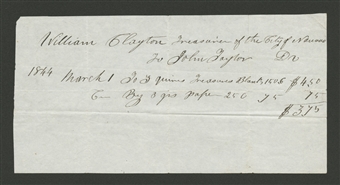 William Clayton Treasurer of the City of Nauvoo
To John Taylor Dr
1844 March 1 To 3 quires Treasurers Blanks 150c $4.50
By 3 qrs paper 25c 75 75
$3.75